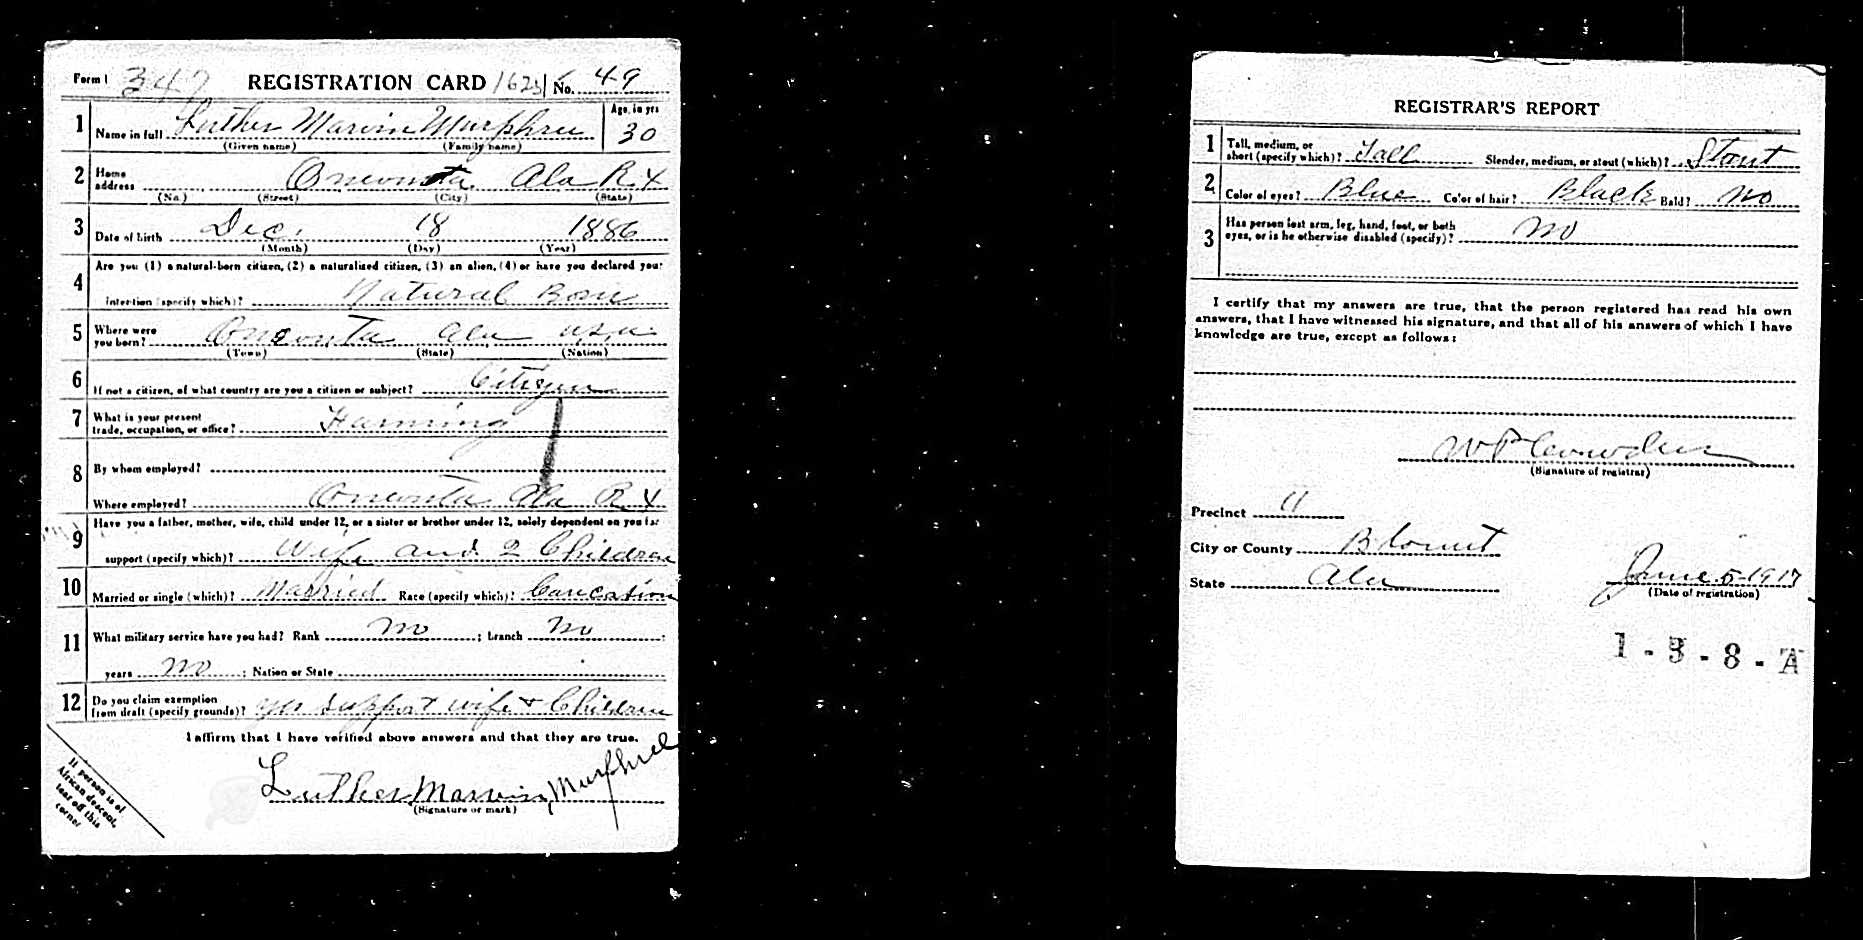 Form 1 347 REGISTRATION CARD No. 49
1 Name in full Luther Marvin Murphree Age, in yrs 30
(Given name) (Family name)
2 Home address Oneonta Ala R 4
(No.) (Street) (City) (State)
3 Date of birth Dec. 18 1886
(Month) (Day) (Year)
4 Are you (1) a natural-born citizen, (2) a naturalized citizen, (3) an alien, (4) or have you declared your
intention (specify which)? Natural Born
5 Where were you born? Oneonta Ala U.S.A.
(Town) (State) (Nation)
6 If not a citizen, of what country are you a citizen or subject? Citizen
7 What is your present trade, occupation, or office? Farming
8 By whom employed?
Where employed? Oneonta Ala R 4
9 Have you a father, mother, wife, child under 12, or a sister or brother under 12, solely dependent on you for
support (specify which)? Wife and 2 Children
10 Married or single (which)? Married Race (specify which)? Caucasion
11 What military service have you had? Rank no ; branch no ;
years no ; Nation or State
12 Do you claim exemption from draft (specify grounds)? yes support wife + Children
I affirm that I have verified above answers and that they are true.
Luther Marvin Murphree
(Signature or mark)
If person is of
African descent,
tear off this
corner
REGISTRAR'S REPORT
1 Tall, medium, or short (specify which)? Tall Slender, medium, or stout (which)? Stout
2 Color of eyes? Blue Color of hair? Black Bald? no
3 Has person lost arm, leg, hand, foot, or both
eyes, or is he otherwise disabled (specify)? no
I certify that my answers are true, that the person registered has read his own
answers, that I have witnessed his signature, and that all of his answers of which I have
knowledge are true, except as follows:
W P Cowden
(Signature of registrar)
Precinct 11
City or County Blount
State Ala June 5-1917
(Date of registration)
1-3-8-A